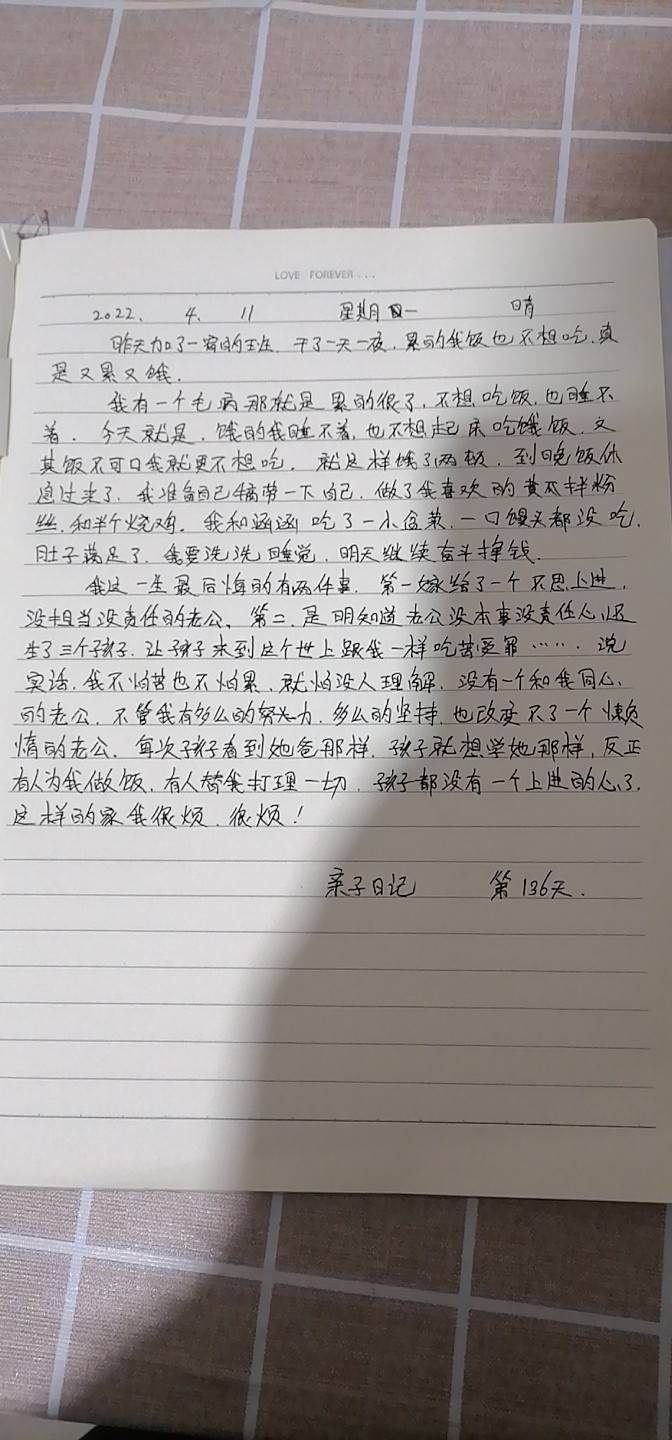 LOVE FOREVER...
2022、 4、 11 星期一 晴
昨天加了一宿的班、干了一天一夜,累的我饭也不想吃,真
是又累又饿.
我有一个毛病那就是累的很了,不想吃饭,也睡不
着. 今天就是,饿的我睡不着,也不想起床吃饿饭.
其饭不可口我就更不想吃. 就这样饿了两顿. 到晚饭休
过来了. 我准备自己犒劳一下自己. 做了我喜欢的黄瓜拌粉
丝,和半个烧鸡. 我和涵涵吃了一小盆菜,一口馒头都没吃.
肚子满足了. 我要洗洗睡觉,明天继续奋斗挣钱.
我这一生最后悔的有两件事. 第一嫁给了一个不思上进,
没担当没责任的老公、第二是明知道老公没本事没责任心,还
生了三个孩子. 让孩子来到这个世上跟我一样吃苦受罪……. 说
实话,我不怕苦也不怕累,就怕没人理解,没有一个和我同心
的老公,不管我有多么的努力,多么的坚持,也改变不了一个懒
惰的老公. 每次孩子看到她爸那样,孩子就想学她那样,反正
有人为我做饭,有人替我打理一切. 孩子都没有一个上进的心了.
这样的家我很烦、很烦!
亲子日记 第136天.